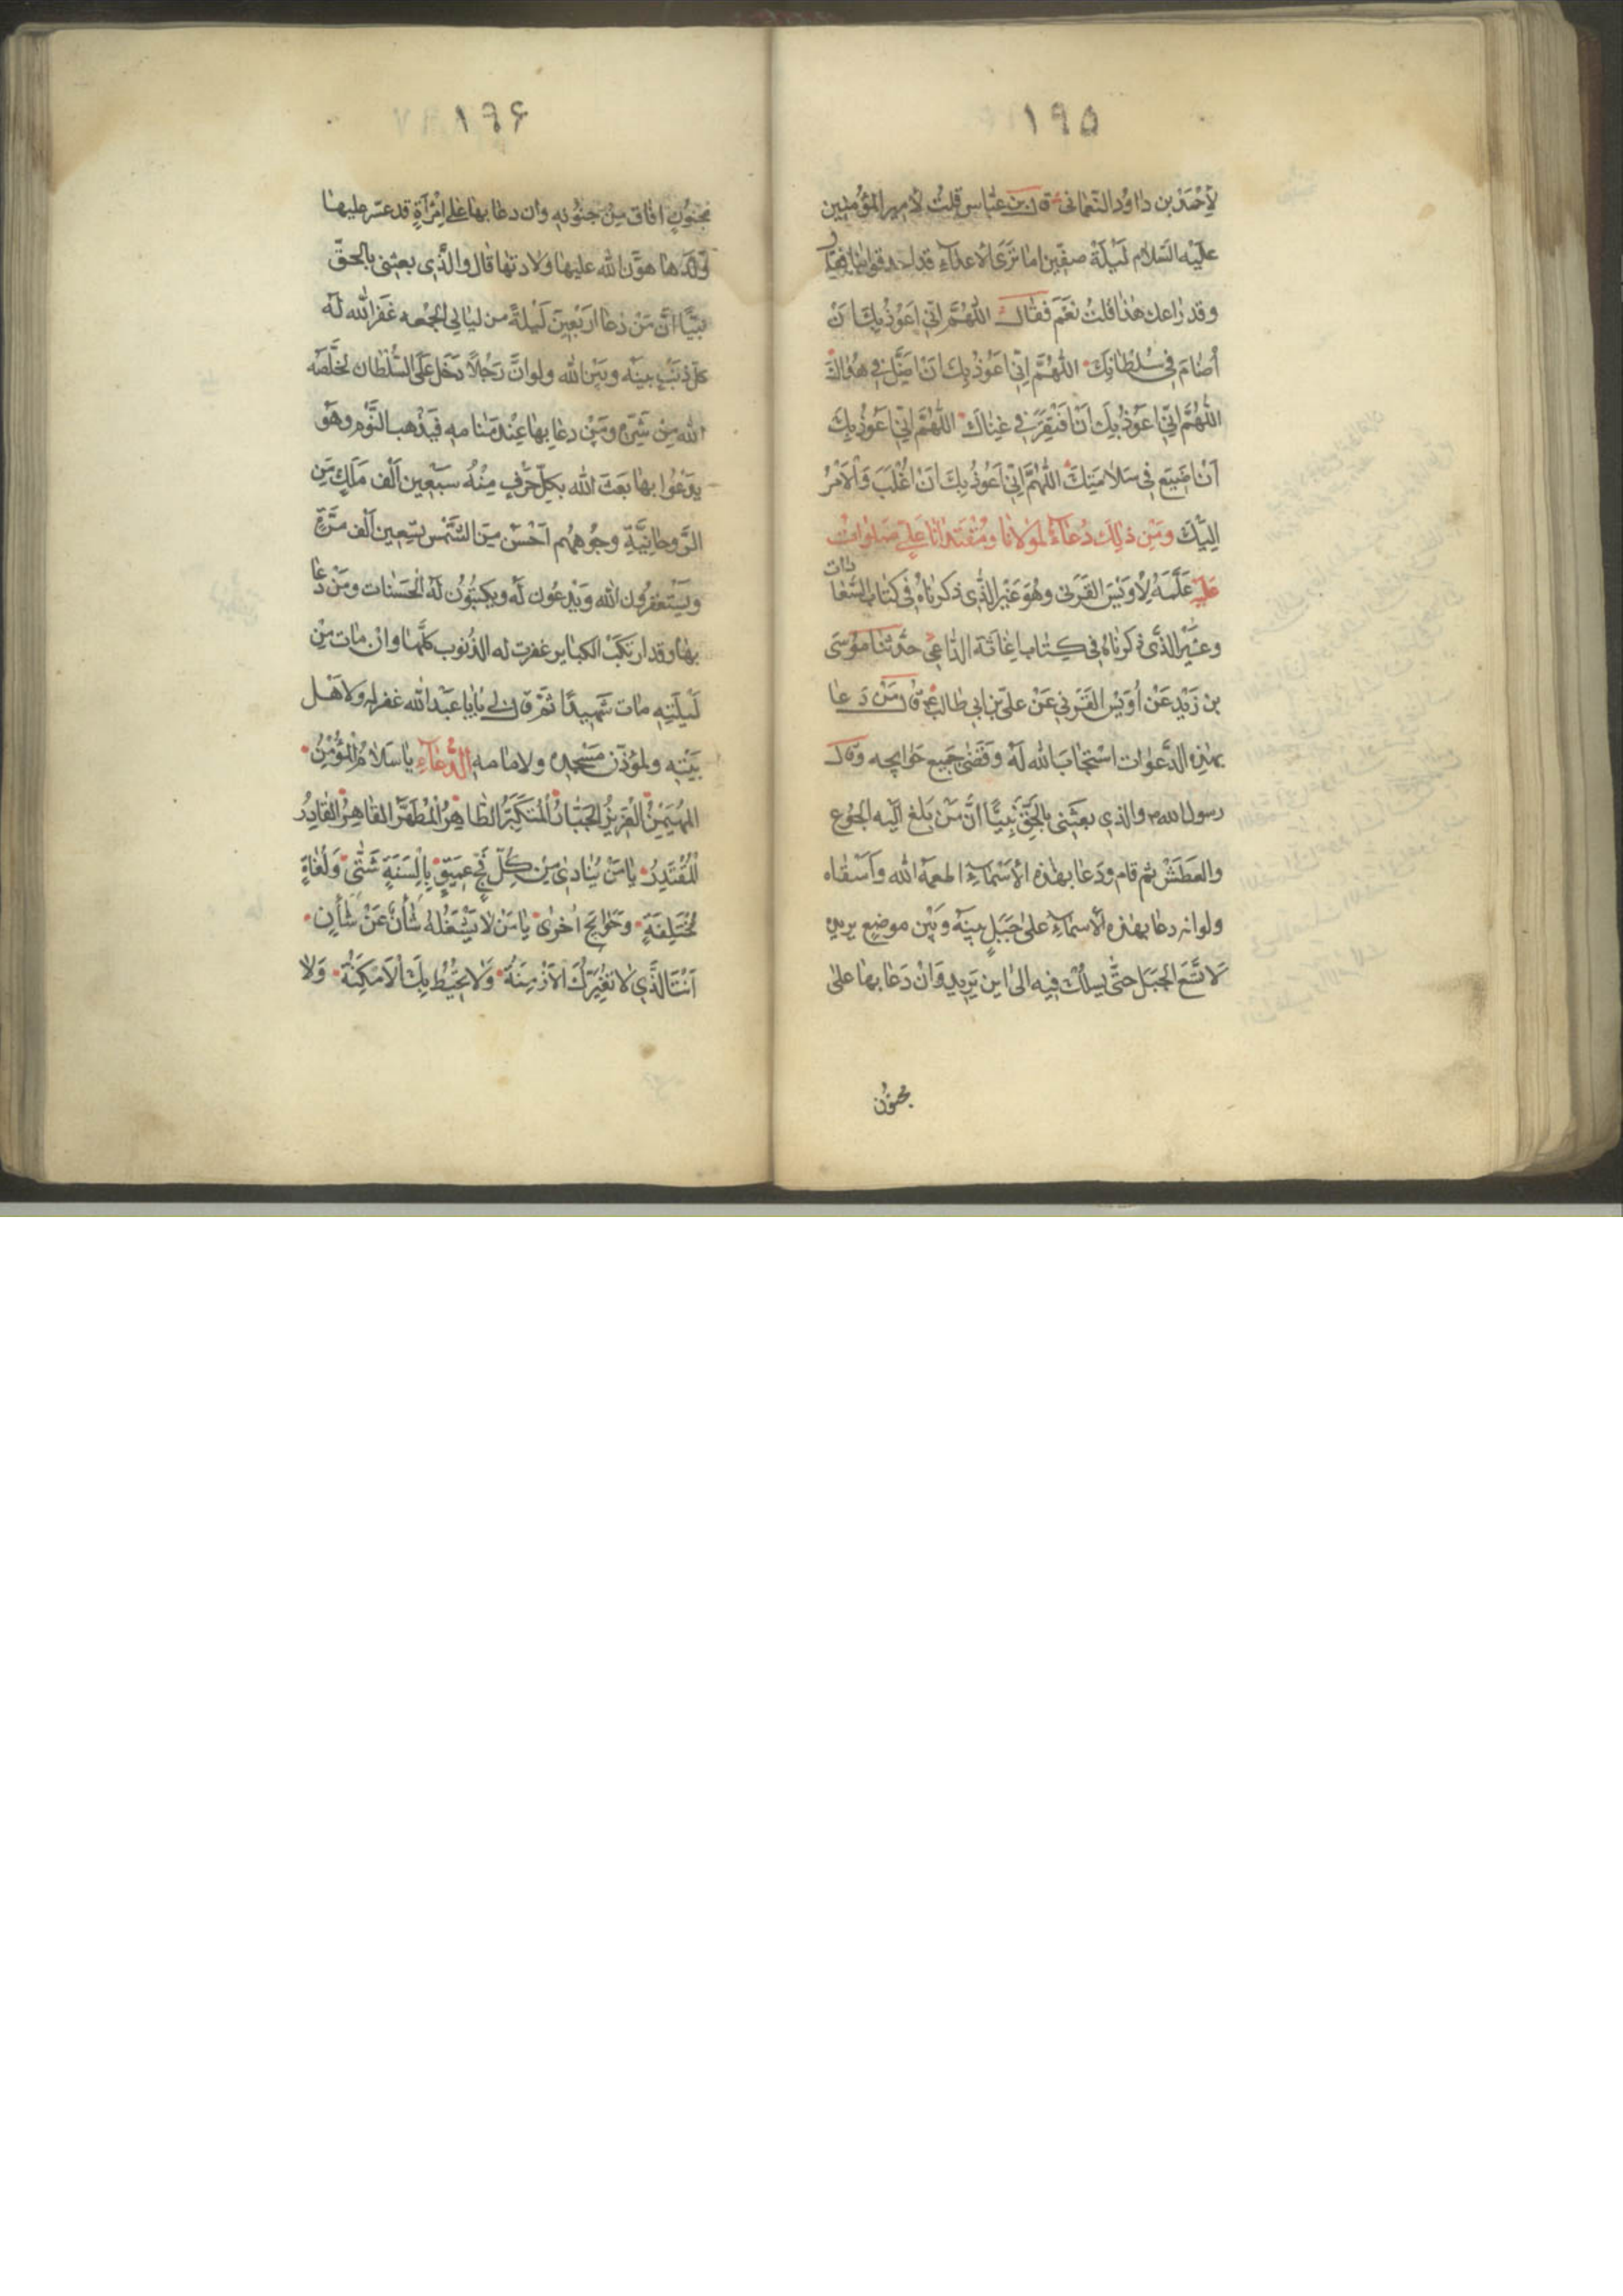 ١٩٥
لأَحْمَدَ بن دٰاوُد النّعمٰانى قال ابن عبّاس قلتُ لأمير المؤمنين
عليه السّلام لَيلَة صفّين امٰا ترَى الأعدٰاء قد احدقوا بنٰا فقٰال
وقد رٰاعك هٰذٰا قلتُ نعَم فقٰال اللّٰهُمَّ اِنّى اعوُذُ بِكَ اَنْ
اُضٰامَ فى سُلطٰانِكَ اللّٰهُمَّ اِنّى اَعُوذُ بِكَ اَنْ اَضِلَّ فى هُدٰاكَ
اللّٰهُمَّ اِنّى اَعوُذُ بِكَ اَنْ اَفْتَقِرَ فى غِنٰاكَ اللّٰهُمَّ اِنّى اَعوُذُ بِكَ
اَنْ اَضيعَ فى سَلامَتِكَ اللّٰهُمَّ اِنّى اَعُوذُ بِكَ اَنْ اُغْلَبَ وَالاَمْرُ
اِلَيْكَ ومَن ذٰلِكَ دُعٰاءٌ لمولانٰا ومُقتَدٰانٰا عَلىٍّ صَلوٰات
عليه علّمَهُ لأُوَيْسَ القَرَنى وهُوَ غَيْر الّذى ذكرنٰاهُ فى كتٰاب السّعٰا
دات
وغَيْر الذّى ذكرنٰاهُ فى كِتٰاب اغٰاثة الدّٰاعى حدّثنٰا مُوسَى
بن زَيْدٍ عَنْ اُوَيْس القَرنى عَنْ علىّ بن ابى طالب ع قٰال مَن دَعٰا
بهٰذِهِ الدَّعوٰات اسْتجٰابَ الله لَهُ وقَضٰى جَميع حَوٰايجه وقال
رسول الله ص والذى بعَثَنى بالحَقّ نَبيًّا انَّ مَن بَلغ اليه الجُوع
والعَطَش ثم قام ودَعٰا بهٰذه الأسْمٰاءِ اطعمَهُ الله وَاَسْقٰاه
ولو انه دعٰا بهٰذه الأسْمٰاءِ على جَبَلٍ بينَهُ وبَيْن موضع يريده
لاتّسَعَ الجَبَل حتّٰى يسلُك فيه الى اين يَريد وَانْ دَعٰا بهٰا على
مجنون
١٩۶
مجنُونٍ افاق مِنْ جنوُنهِ وان دعٰا بهٰا على اِمْرَأةٍ قد عسر عليهٰا
وَلَدُهٰا هوّن الله عليهٰا ولادتهٰا قٰال والذّى بعثنى بالحقّ
نبيًّا انَّ مَنْ دَعٰا اربَعينَ لَيْلةً من ليٰالى الجُمعه غفَر الله لَهُ
كلّ ذَنْبٍ بينَه وبَيْن الله ولو انَّ رَجُلاً دَخل عَلى السُّلطٰان لخلّصَه
الله مِن شَرِّهِ ومَنْ دعٰا بهٰا عِنْد مَنٰامه فيَذْهب النَّوْم وهُوَ
يَدْعُوا بهٰا بَعَثَ الله بِكلّ حَرْفٍ مِنْهُ سَبْعِين اَلْف مَلَكٍ مِن
الرَّوحٰانيَّةِ وجُوههُم اَحْسَن مِنَ الشَّمْس بتسعين اَلْف مَرَّةٍ
ويَسْتغفِرُون الله وَيَدعُون لَهُ ويكتبُون لَهُ الحَسَنات ومَنْ دَعٰا
بهٰا وقد ارتكَبَ الكبٰاير غفرت له الذّنوب كلّهٰا وانْ مٰات مِنْ
لَيْلَتِهِ مٰات شهيدًا ثمّ قٰال لى يٰا بٰا عَبْد الله غفر له ولأهْل
بَيْته ولمؤذّن مَسْجِده ولامٰامه الدُّعٰاءُ يٰا سَلاٰمُ المُؤْمِنُ
المُهَيْمِنُ العَزيزُ الجَبّٰارُ المُتَكَبِّرُ الطّٰاهِرُ المُطَهِّرُ القٰاهِرُ القٰادِرُ
المُقْتَدِرُ يٰا مَنْ يُنٰادىٰ مِن كُلِّ فَجٍّ عَميقٍ بِاَلْسِنَةٍ شَتّٰى وَلُغٰاتٍ
مُخْتَلِفَةٍ وحَوٰايِجَ اُخرىٰ يٰا مَنْ لاٰ يَشْغَلُهُ شَأْنٌ عَنْ شَأْنٍ
اَنْتَ الَّذى لاٰ تُغَيِّرُكَ الاَزْمِنَةُ وَلاٰ تُحيطُ بِكَ الاَمْكِنَةُ وَلاٰ